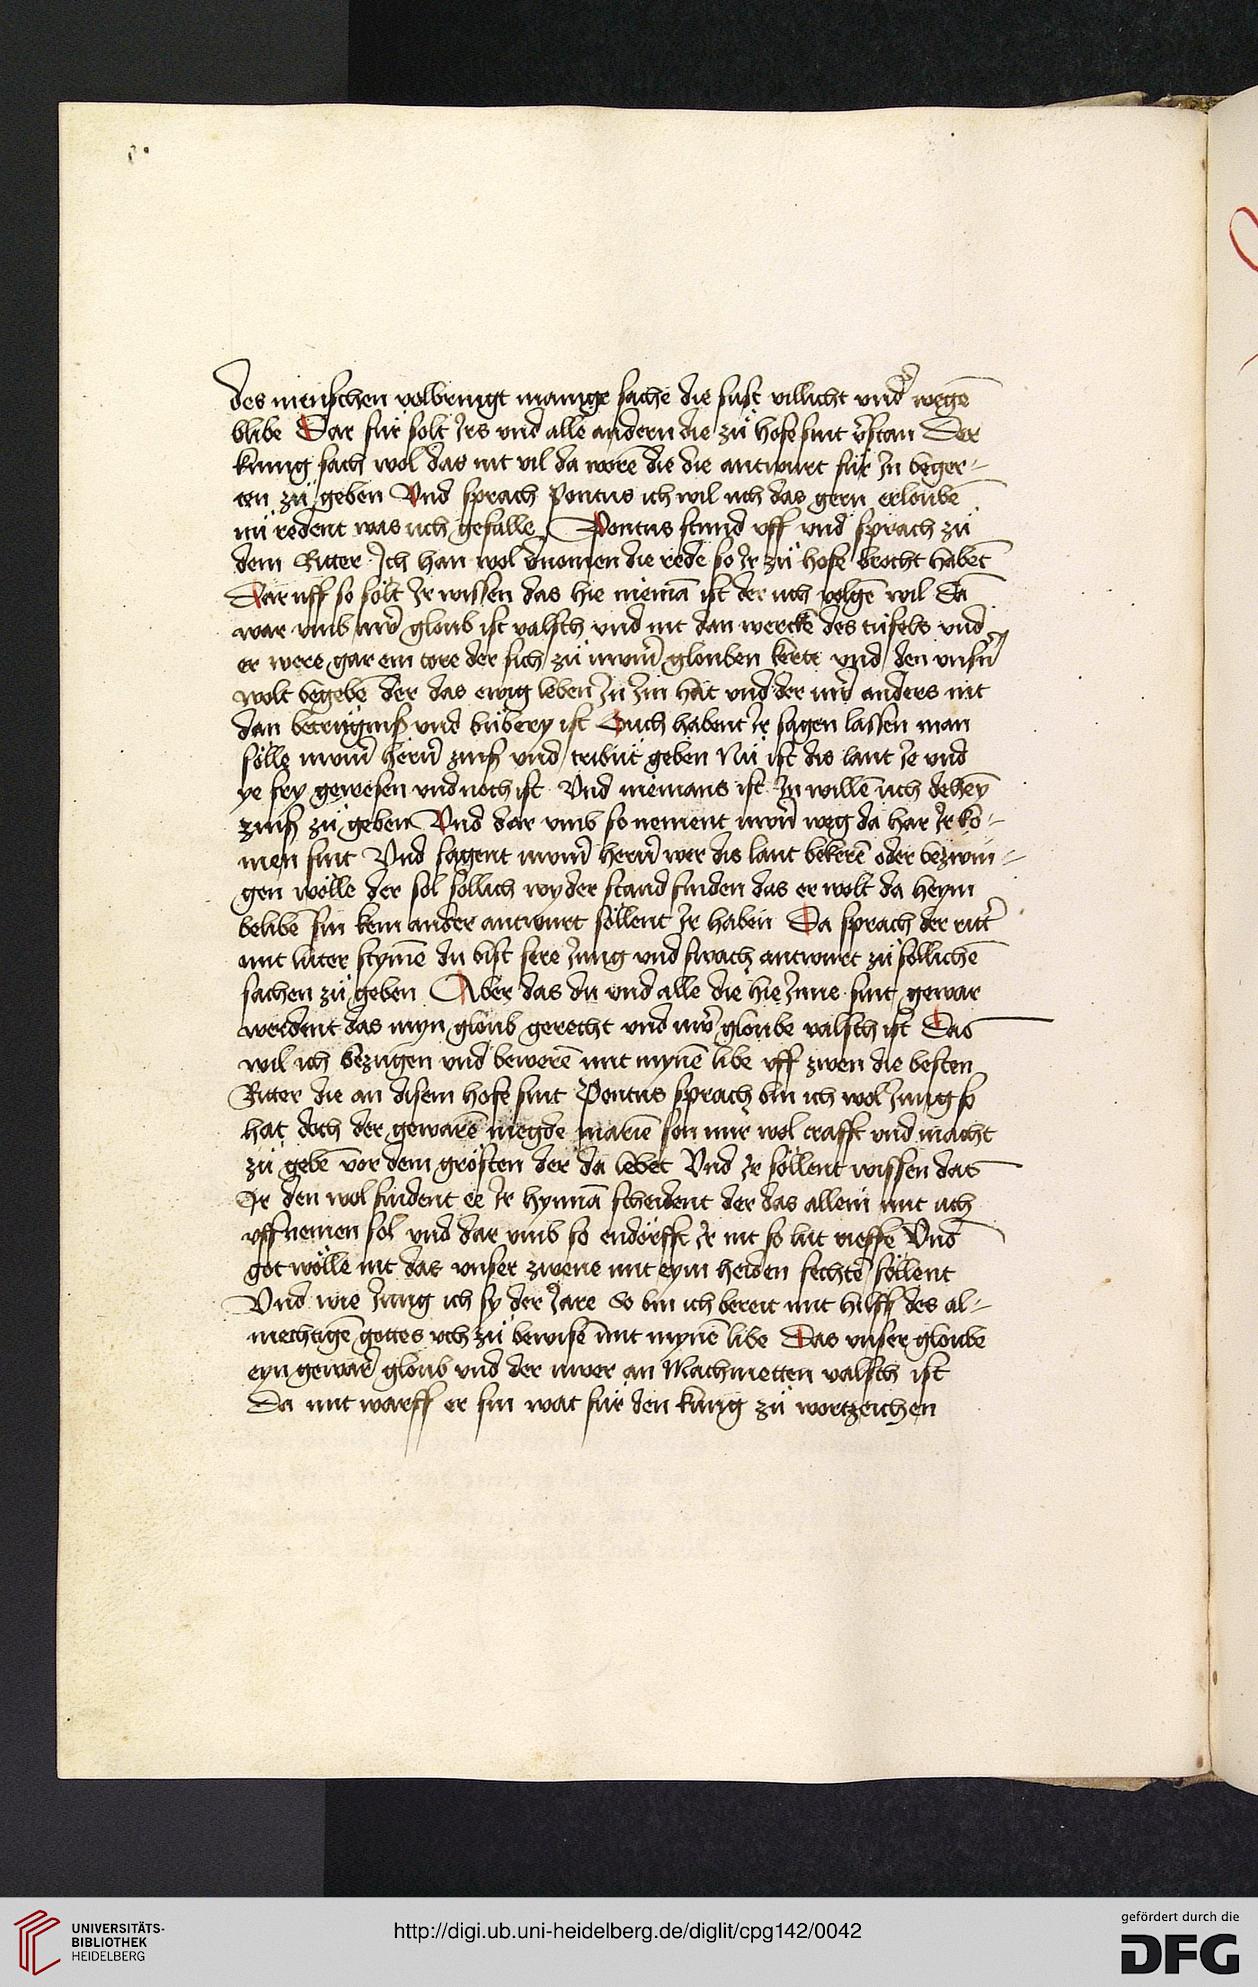 des menschen volbringt mange sache die sust villicht vnd' wegē
blibe Dar für solt Jrs vnd alle andern die zü hofe sint v'stan Der
kunig sach wol das nit vil da worē die die antwurt für Jn beger-
ten zü geben Vnd sprach Pontus ich wil uch das gern erloubē
nü redent was uch gefalle Pontus stund vff vnd sprach zü
dem Ritter Jch han wol v'nomen die rede so Jr zü hofe brocht habēt
Dar uff so sölt Jr wissen das hie niemā ist der uch volgē wil Dā
war vmb uw' gloub ist valsch vnd nit dan werckē des tüfels vnd
er were gar ein tore der sich zü uwerm̄ glouben kerte vnd den vnsrn̄
wolt begebē der das ewig leben Jn Jm hat vnd der uw' anders nit
dan betrügniß vnd büberÿ ist Ouch habent Jr sagen lassen man
sölle uwerm̄ hern̄ zinß vnd tribüt geben Nü ist dis lant Je vnd
ye frÿ gewesen vnd noch ist Vnd niemans ist Jn willē uch dehein̄
zinß zü geben Vnd dar vmb so nement uwern̄ weg da har Jr ko-
men sint Vnd sagent uwerm̄ hern̄ wer dis lant bekerē oder bezwin-
gen wölle der sol sollich wyder stand finden das er wolt da heym
belibē sin kein ander antwurt söllent Jr haben Da sprach der ritt'
mit luter stymē du bist sere Jung vnd swach antwurt zü söllichē
sachen zü geben Aber das du vnd alle die hie Jnne sint gewar
werdent das myn gloub gerecht vnd uw' gloube valsch ist Das
wil ich bezügen vnd bewerē mit mynē libe vff zwen die besten
Ritter die an disem hofe sint Pontus sprach bin ich wol Jung so
hat doch der gewarē megde marie son mir wol crafft vnd macht
zü gebē vor dem grösten der da lebet Vnd Jr söllent wissen das
Jr den wol findent ee Jr hynnā scheident der das allein mit uch
vffnemen sol vnd dar vmb so endörfft Jr nit so lut rieffē Vnd
got wölle nit das vnser zwene mit eym heiden fechtē söllent
Vnd wie Jung ich sÿ der Jare So bin ich bereit mit hilff des al-
mechtigē gottes vch zü bewisē mit mynē libe Das vnser gloube
eyn gewar' gloub vnd der uwer an Machmetten valsch ist
Da mit warff er sin wat für den kunig zü wortzeichen
UNIVERSITÄTS-
BIBLIOTHEK
HEIDELBERG
http://digi.ub.uni-heidelberg.de/diglit/cpg142/0042
gefördert durch die
DFG